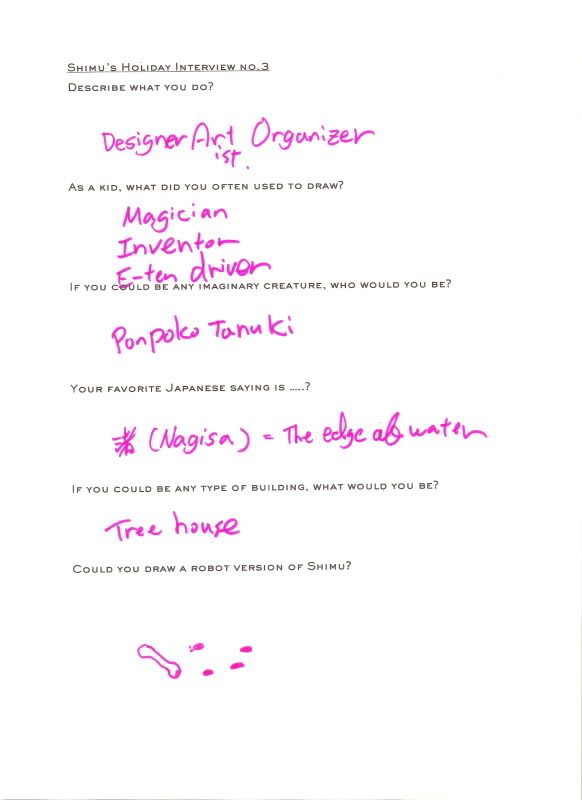 Shimu's Holiday Interview no.3
Describe what you do?
Designer Art Organizer
ist.
As a kid, what did you often used to draw?
Magician
Inventor
E-ten driver
If you could be any imaginary creature, who would you be?
Ponpoko Tanuki
Your favorite Japanese saying is .....?
渚 (Nagisa) = The edge of water
If you could be any type of building, what would you be?
Tree house
Could you draw a robot version of Shimu?